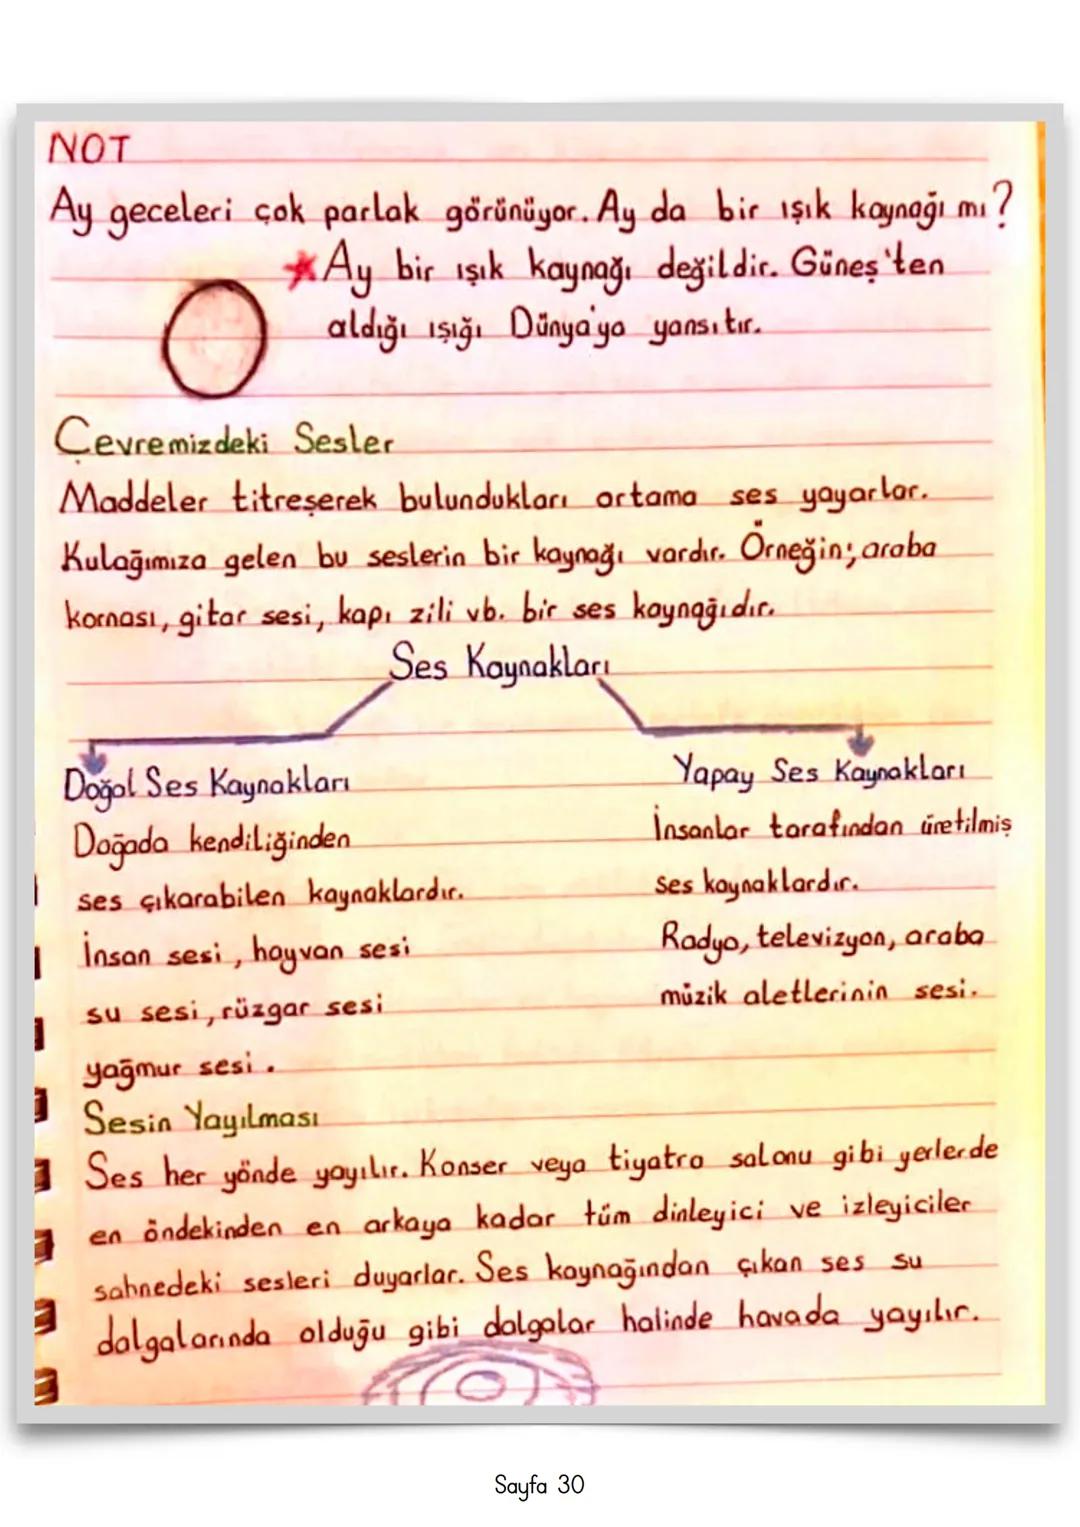 NOT
Ay geceleri çok parlak görünüyor. Ay da bir ışık kaynağı mı?
★Ay bir ışık kaynağı değildir. Güneş'ten
aldığı ışığı Dünya'ya yansıtır.
Çevremizdeki Sesler
Maddeler titreşerek bulundukları ortama ses yayarlar.
Kulağımıza gelen bu seslerin bir kaynağı vardır. Örneğin; araba
kornası, gitar sesi, kapı zili vb. bir ses kaynağıdır.
Ses Kaynakları
Doğal Ses Kaynakları
Doğada kendiliğinden
ses çıkarabilen kaynaklardır.
İnsan sesi, hayvan sesi
su sesi, rüzgar sesi
yağmur sesi.
Yapay Ses Kaynakları
İnsanlar tarafından üretilmiş
ses kaynaklardır.
Radyo, televizyon, araba
müzik aletlerinin sesi.
Sesin Yayılması
Ses her yönde yayılır. Konser veya tiyatro salonu gibi yerlerde
en öndekinden en arkaya kadar tüm dinleyici ve izleyiciler
sahnedeki sesleri duyarlar. Ses kaynağından çıkan ses su
dalgalarında olduğu gibi dalgalar halinde havada yayılır.
Sayfa 30